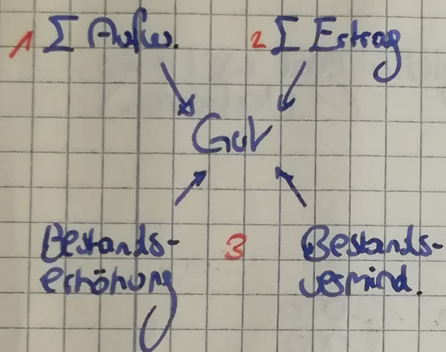 1 Σ Aufw.
2 Σ Ertrag
GuV
Bestands-
erhöhung
3
Bestands-
vermind.